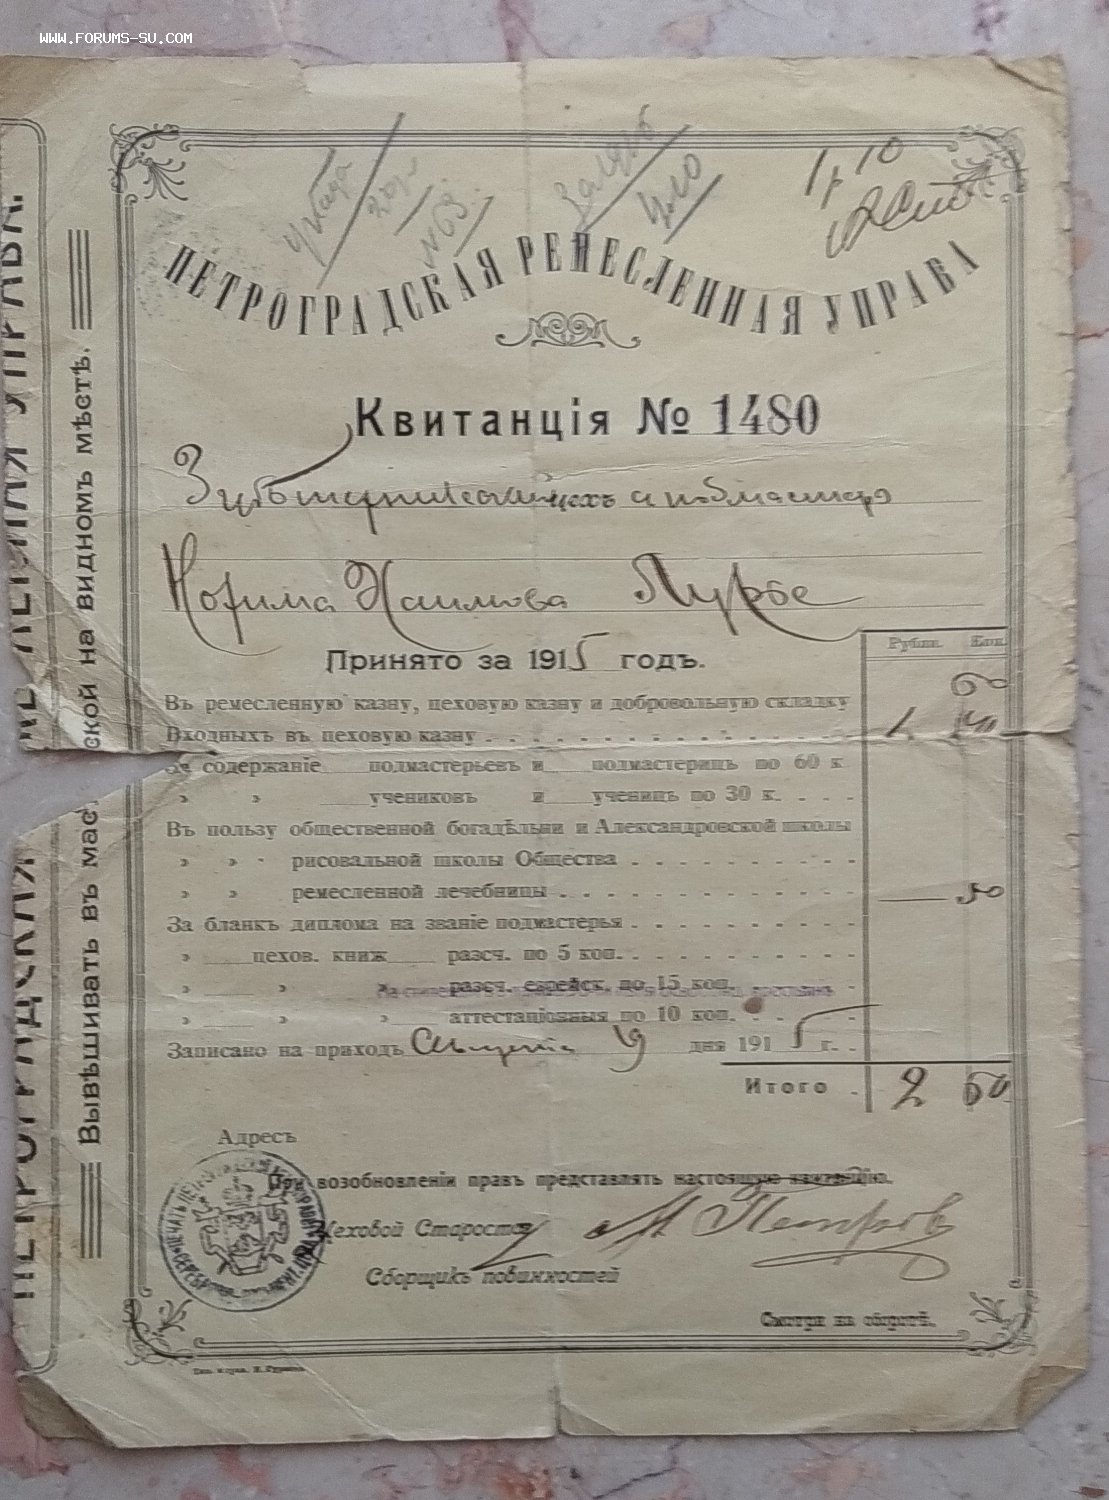 WWW.FORUMS-SU.COM
1 р 10
№ 63
ПЕТРОГРАДСКАЯ РЕМЕСЛЕННАЯ УПРАВА
Квитанція № 1480
цехъ и подмастеръ
Наимова Лурье
Принято за 1915 годъ.
Рубли. Коп.
Въ ремесленную казну, цеховую казну и добровольную складку 60
Входныхъ въ цеховую казну 1
За содержаніе подмастерьевъ и подмастерицъ по 60 к
» » учениковъ и ученицъ по 30 к.
Въ пользу общественной богадѣльни и Александровской школы
» » рисовальной школы Общества
» » ремесленной лечебницы 50
За бланкъ диплома на званіе подмастерья
» цехов. книж разсч. по 5 коп.
» » разсч. еврейск. по 15 коп.
» » » аттестаціонныя по 10 коп.
Записано на приходъ 9 дня 1915 г.
Итого 2 50
Адресъ
При возобновленіи правъ представлять настоящую квитанцію.
Цеховой Староста Петров
Сборщикъ повинностей
Смотри на оборотѣ.
Вывѣшивать въ мас ской на видномъ мѣстѣ.
ПЕТРОГРАДСКАЯ РЕМЕСЛЕННАЯ УПРАВА.